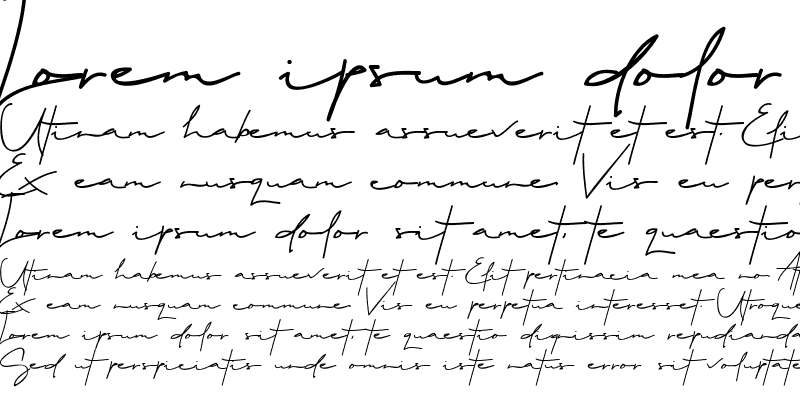 Lorem ipsum dolor
Utinam habemus assueverit et est. Eli
Ex eam nusquam commune. Vis eu per
Lorem ipsum dolor sit amet, te quaestio
Utinam habemus assueverit et est. Elit pertinacia mea no. At
Ex eam nusquam commune. Vis eu perpetua interesset. Utroque
Lorem ipsum dolor sit amet, te quaestio dignissim repudianda
Sed ut perspiciatis unde omnis iste natus error sit voluptate